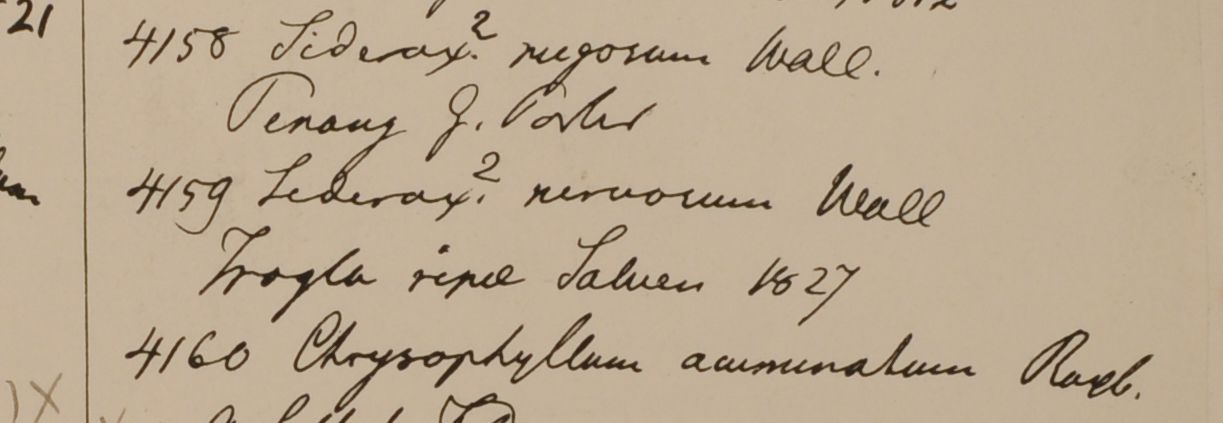 21
4158 Siderox.? rugosum Wall.
Penang G. Porter
4159 Siderox.? nervosum Wall
Trogla ripæ Saluen 1827
4160 Chrysophyllum acuminatum Roxb.